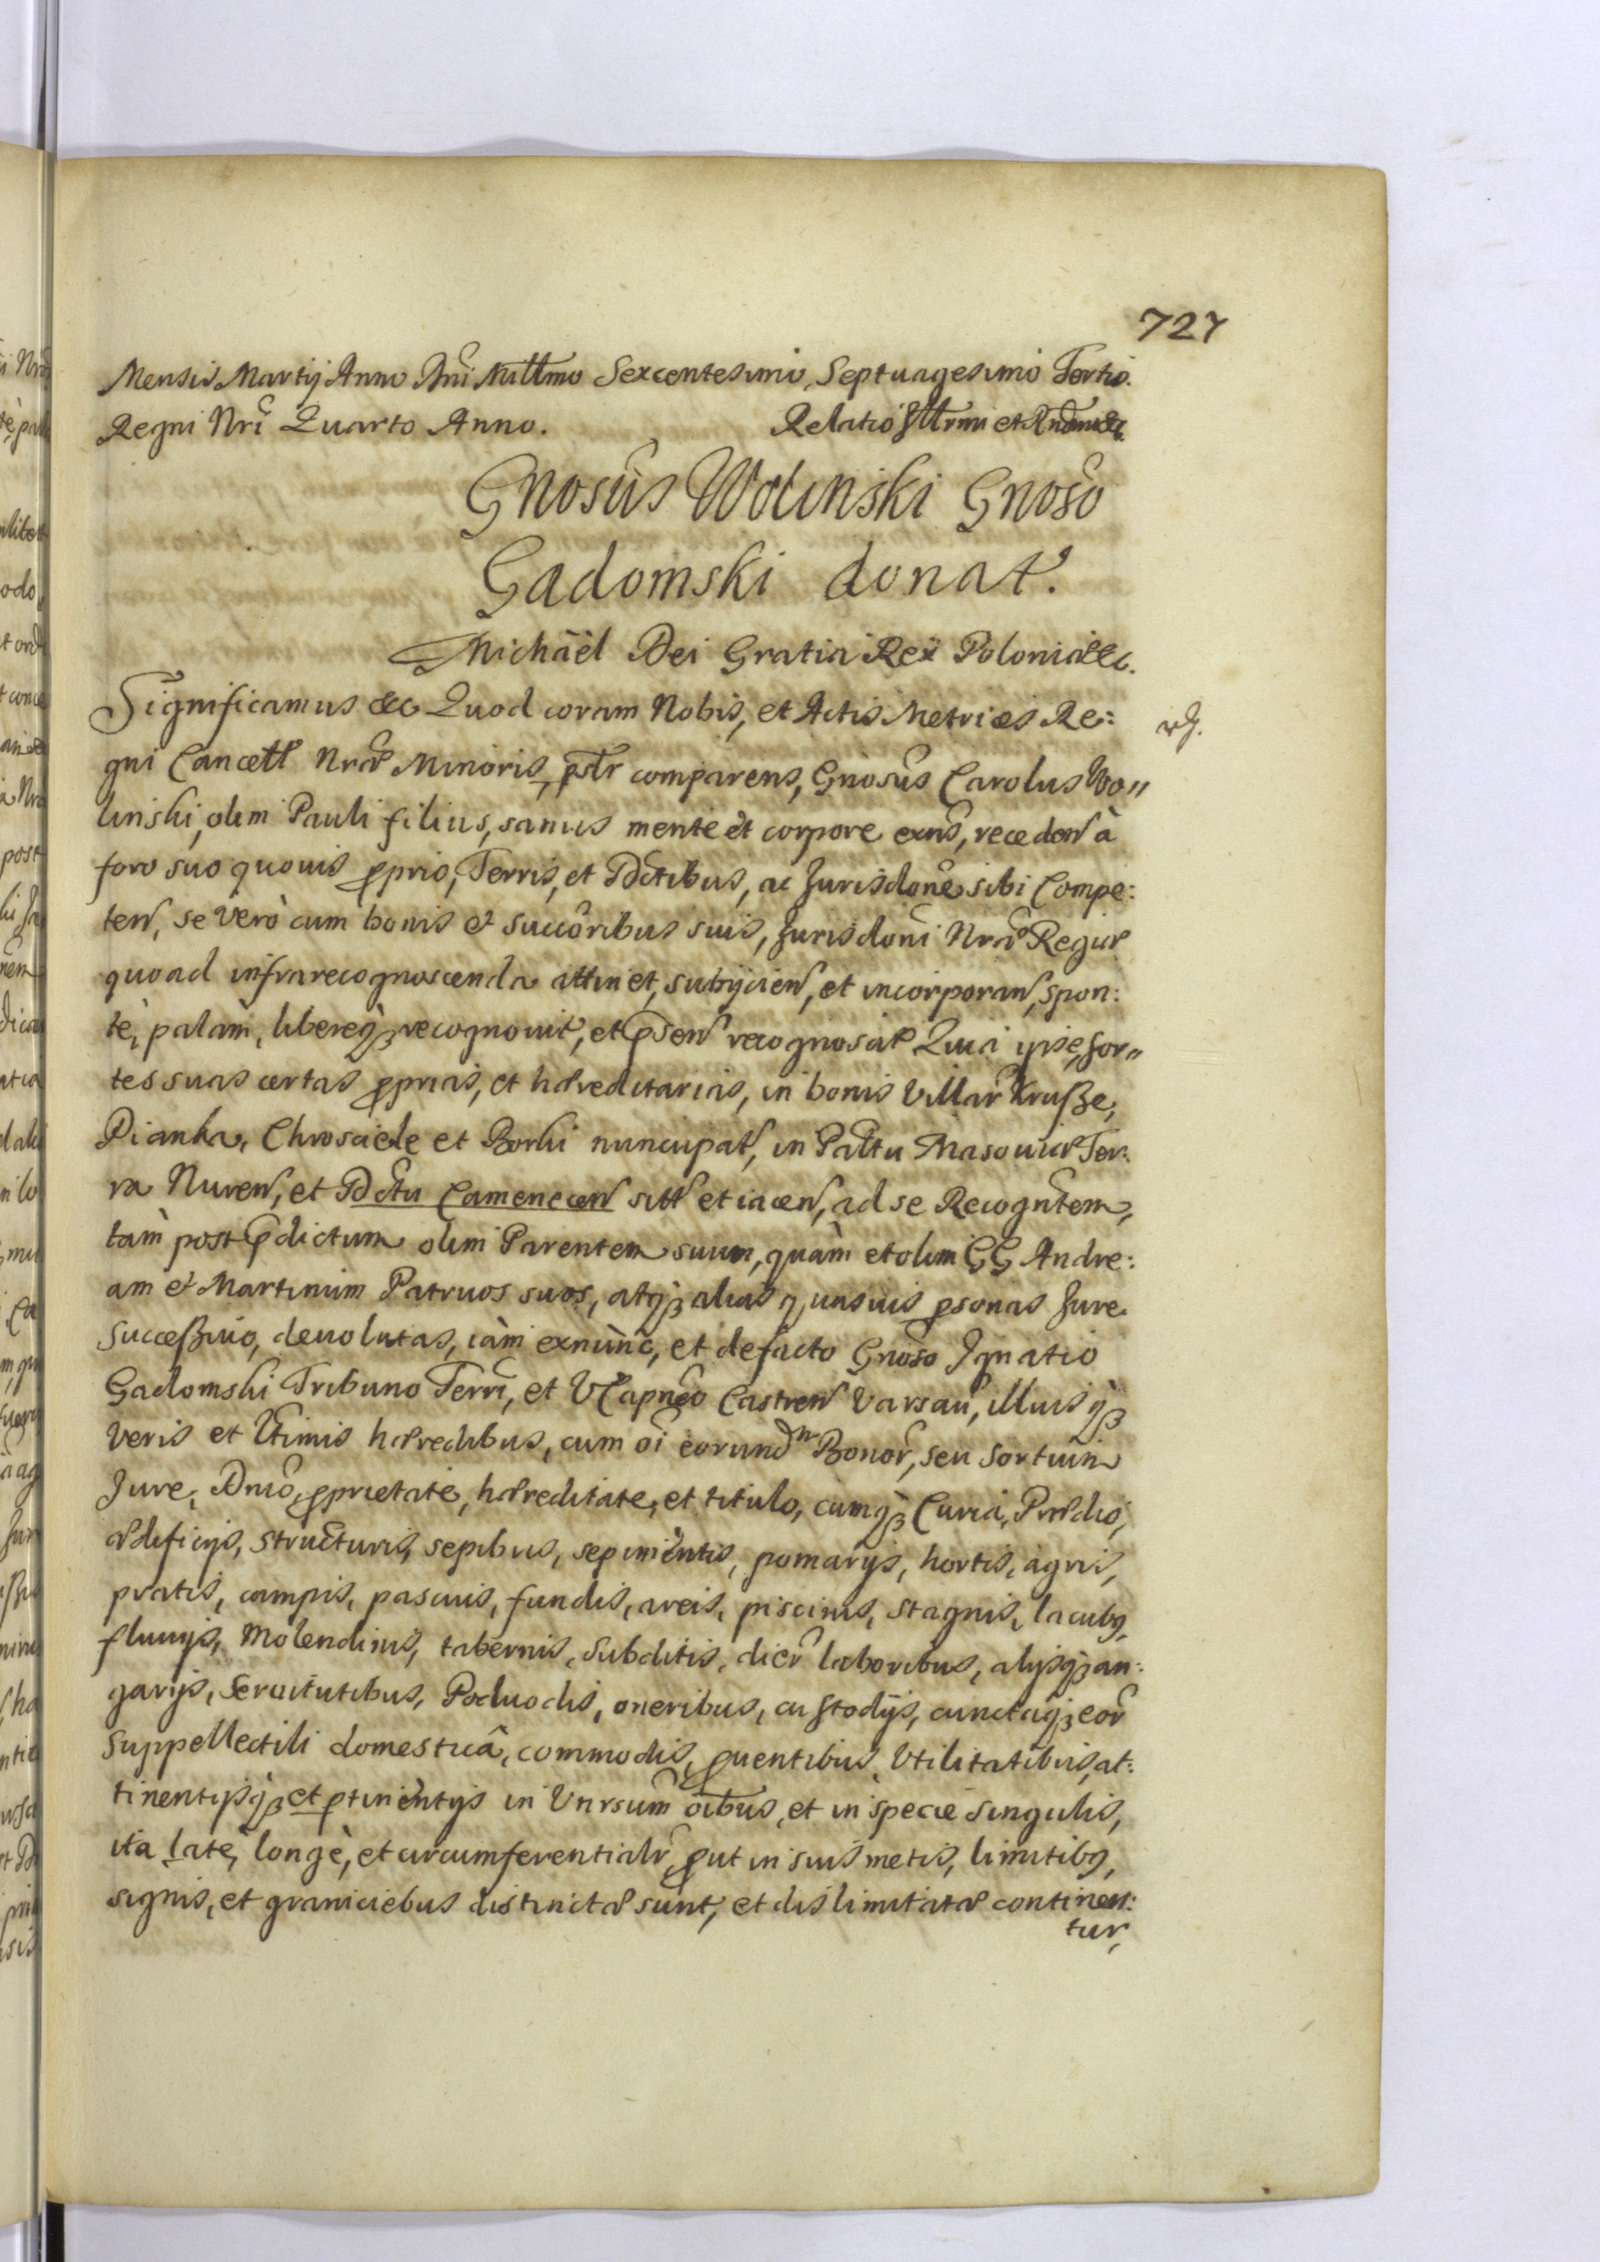 727
Mensis Martij Anno Dni Millmo Sexcentesimo, Septuagesimo Tertio.
Regni Nri Quarto Anno. Relatio Illrmi et Rndmi &c.
Gnosus Wolinski Gnoso
Gadomski donat.
Michäel Dei Gratia Rex Poloniæ &c.
Significamus &c Quod coram Nobis, et Actis Metrices Re:
gni Cancell Nræ Minoris, pslr comparens, Gnosus Carolus Wo„
linski, olim Pauli filius, sanus mente et corpore exns, receden à
foro suo quouis pprio, Terris, et Dctibus, ac Jurisdone sibi Compe:
ten, se verò cum bonis et succoribus suis, Jurisdoni Nræ Regiæ
quoad infrarecognoscenda attinet, subijcien, et incorporan, spon:
tè, palam, libereq recognouit, et psen recognoscit Quia ipse, sor„
tes suas certas pprias, et hæreditarias, in bonis Villar Krusze,
Pianka, Chroscicle et Borki nuncupat, in Paltu Masouiæ Ter:
ra Nuren, et Dctu Camenecen sitt et iacen, ad se Recogntem,
tàm post pdictum olim Parentem suum, quàm et olim GG Andre:
am et Martinum Patruos suos, atq alias quasuis psonas Jure
Successiuo, deuolutas, iàm exnùnc, et defacto Gnoso Ignatio
Gadomski Tribuno Terri, et VCapneo Castren Varsau, illiusq
Veris et Ltimis hæredibus, cum oi eorundm Bonor, seu sortium
Jure, Dnio, pprietate, hæreditate, et titulo, cumq Curia, Prædio,
ædificijs, structuris, sepibus, sepimentis, pomarijs, hortis, agris,
pratis, campis, pascuis, fundis, areis, piscinis, stagnis, lacubq,
fluuijs, Molendinis, tabernis, Subditis, dier laboribus, alijsq an:
garijs, Seruitutibus, Poduodis, oneribus, custodijs, cunctaq eor
Suppellectili domesticâ, commodis, puentibus, Vtilitatibus, at:
tinentijsq et ptinentijs in Vnrsum oibus, et in specie singulis,
ita late, longè, et circumferentialr put in suis metis, limitibq,
signis, et graniciebus distinctæ sunt, et dislimitatæ continen:
tur,